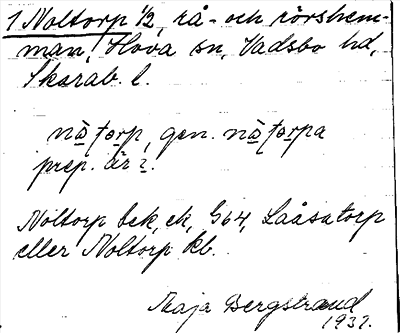 1 Noltorp 1/2, rå- och rörshem-
man, Hova sn, Vadsbo hd,
Skarab. l.
nɷ̀ṭorp, gen. nɷ̀ṭorpa
prep. är i.
Noltorp bek, ek, G64, Laåsatorp
eller Noltorp kb.
Maja Bergstrand
1932.